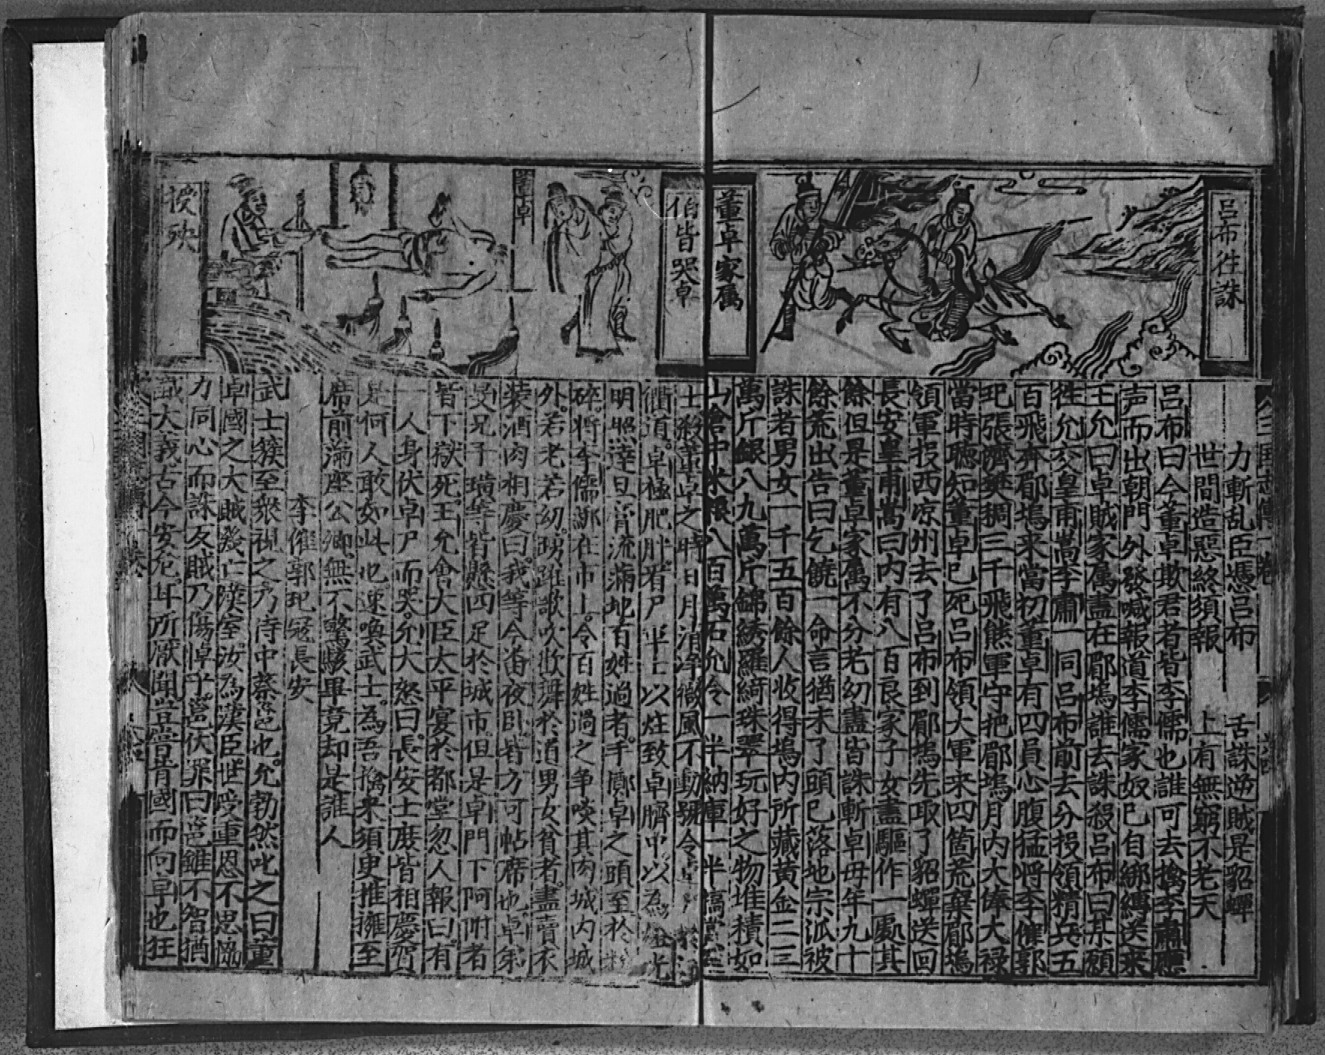 呂布徃誅
董卓家属
力斬乱臣憑呂布　舌誅逆賊是貂蟬
世間造惡終須報　上有無窮不老天
呂布曰今董卓欺君者皆李儒也誰可去擒李肅應
声而出朝門外發喊報道李儒家奴已自綁縛送來
王允曰卓賊家属盡在郿塢誰去誅殺呂布曰某願
徃允交皇甫嵩李肅一同呂布前去分投領精兵五
百飛奔郿塢來當初董卓有四員心腹猛將李傕郭
汜張濟樊稠三千飛熊軍守把郿塢月內大俸大祿
當時聽知董卓已死呂布領大軍來四箇荒棄郿塢
領軍投西凉州去了呂布到郿塢先取了貂蟬送回
長安皇甫嵩曰內有八百良家子女盡驅作一處其
餘但是董卓家属不分老幼盡皆誅斬卓母年九十
餘荒出告曰乞饒一命言猶未了頭已落地宗派被
誅者男女一千五百餘人收得塢內所藏黃金二三
萬斤銀八九萬斤錦綉羅綺珠翠玩好之物堆積如
山倉中米粮八百萬石允令一半納庫一半犒賞
伯皆哭卓
董卓
授殃
士殺董卓之時日月清淨微風不動號令卓尸於
衢道卓極肥胖看尸軍士以炷致卓臍中以為燈光
明照達旦膏流滿地百姓過者手擲卓之頭至於
碎將李儒綁在市上令百姓過之爭啖其肉城內城
外若老若幼踴躍歌吹歡舞於道男女貧者盡賣衣
裝酒肉相慶曰我等今番夜臥皆方可帖席也卓弟
旻兄子璜等皆懸四足於城市但是卓門下阿附者
皆下獄死王允會大臣太平宴於都堂忽人報曰有
一人身伏卓尸而哭允大怒曰長安士庶皆相慶賀
是何人敢如此也速喚武士為吾擒來須臾推擁至
席前滿座公卿無不驚駭畢竟却是誰人
李傕郭汜冦長安
武士簇至衆視之乃侍中蔡邕也允勃然叱之曰董
卓國之大賊發亡漢室汝為漢臣世受重恩不思協
力同心而誅反賊乃傷悼乎邕伏罪曰邕雖不智猶
識大義古今安危耳所厭聞豈當背國而向卓也狂